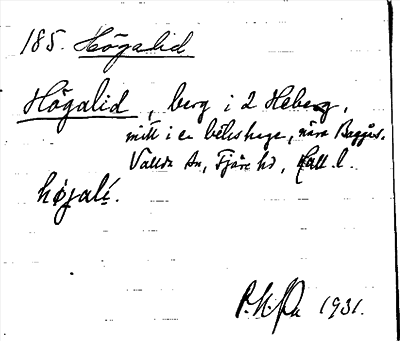 185. Högalid
Högalid, berg i 2 Heberg,
mitt i en beteshage, nära Baggås.
Vallda sn, Fjäre hd, Hall. l.
høgalí.
1931.